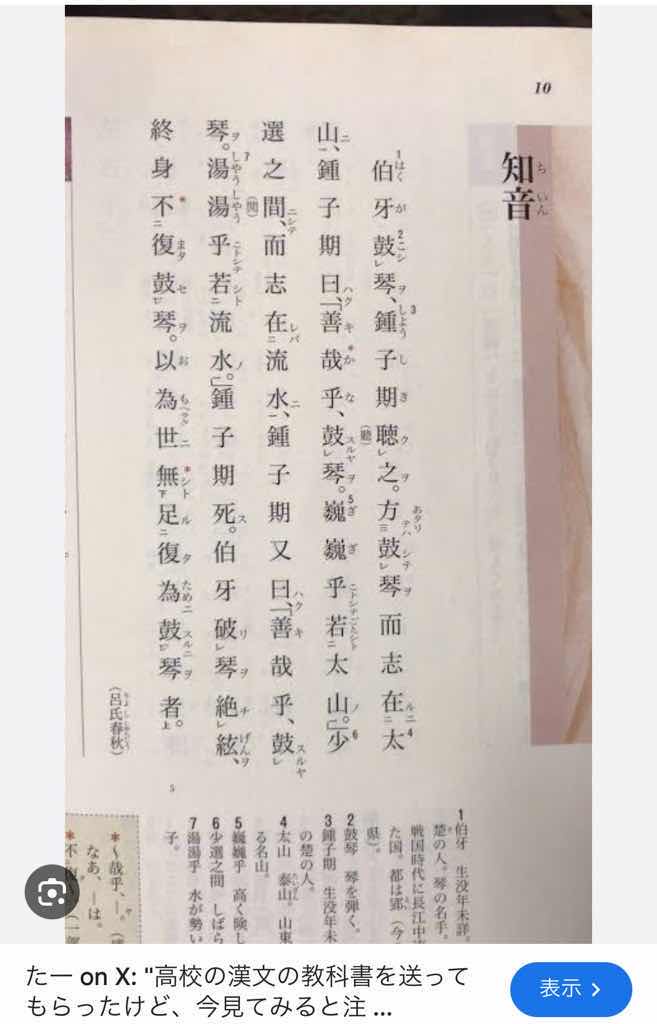 10
知音
伯牙鼓琴、鍾子期聴之。方鼓琴而志在太
山、鍾子期曰、「善哉乎、鼓琴。巍巍乎若太山。」少
選之間、而志在流水、鍾子期又曰、「善哉乎、鼓
琴。湯湯乎若流水。」鍾子期死。伯牙破琴絶絃、
終身不復鼓琴。以為世無足復為鼓琴者。
(呂氏春秋)
5
1伯牙 生没年未詳。
楚の人。琴の名手。
戦国時代に長江中
た国。都は郢(今
県)。
2鼓琴 琴を弾く。
3鍾子期 生没年未
の楚の人。
4太山 泰山。山東
る名山。
5巍巍乎 高く険し
6少選之間 しばら
7湯湯乎 水が勢い
子。
*〜哉乎、―。
なあ、―は。
たー on X: "高校の漢文の教科書を送って
もらったけど、今見てみると注 ...
表示